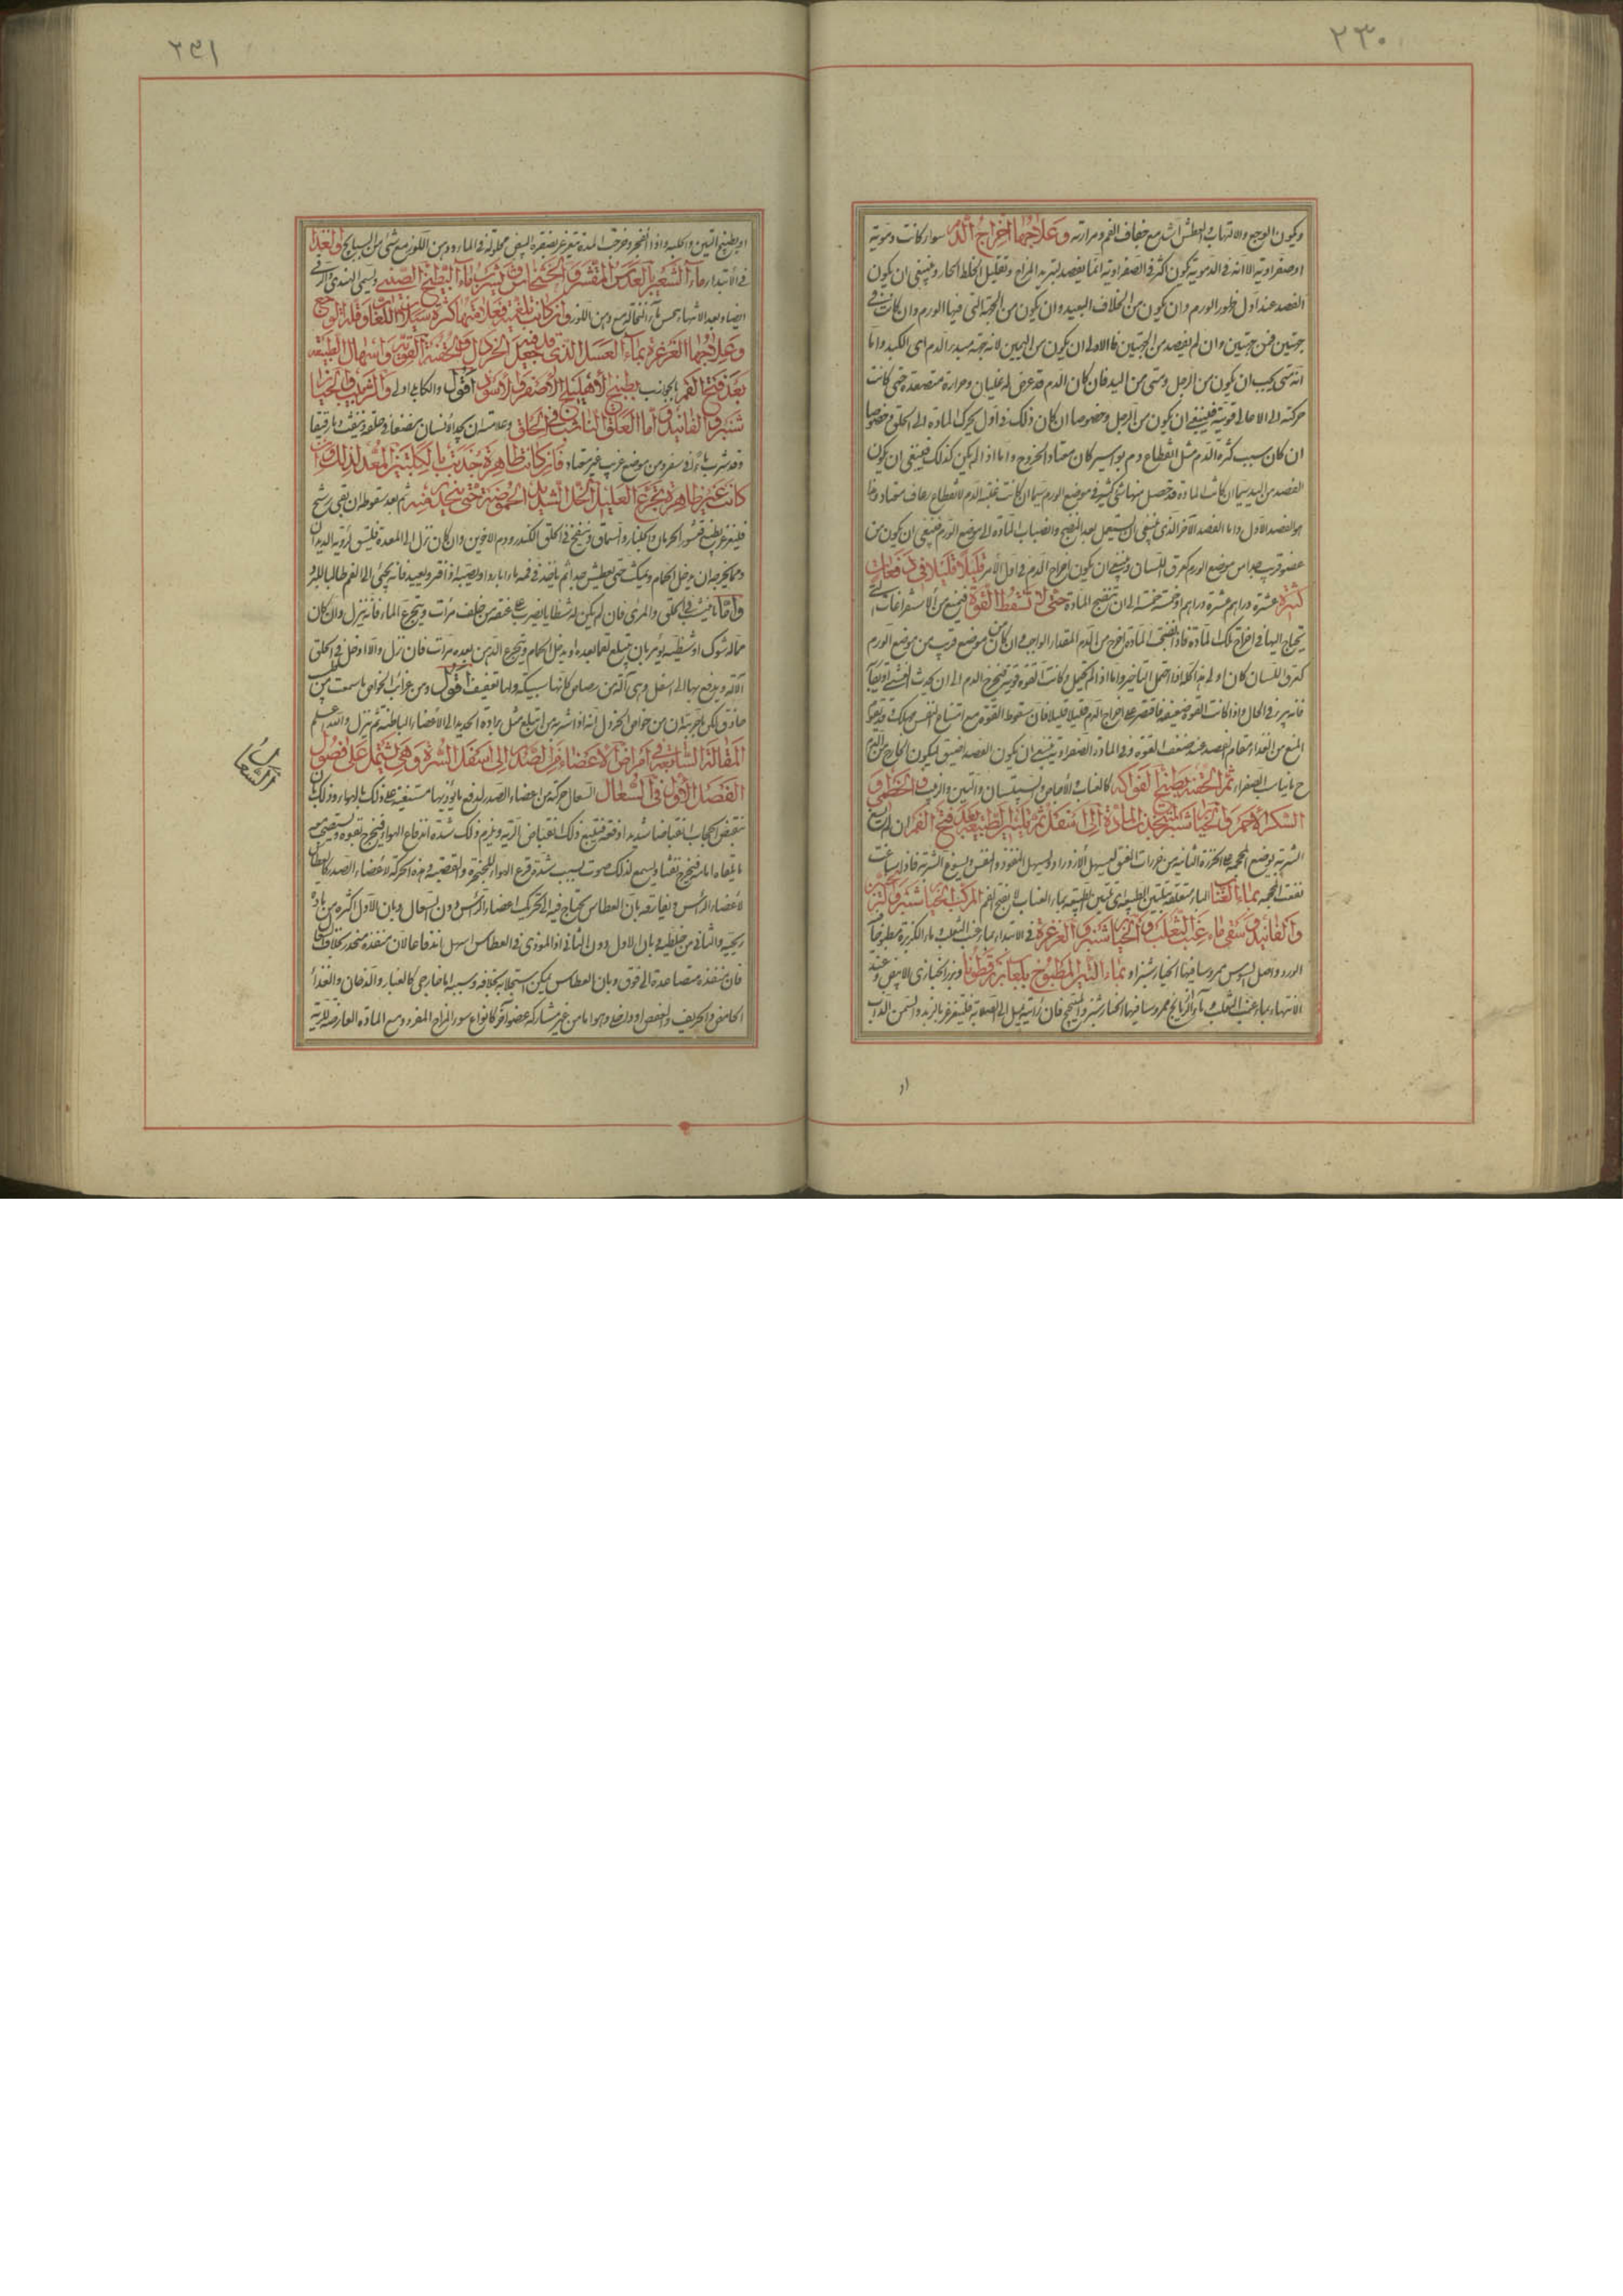 ٢٣٠
ويكون الوجع والالتهاب والعطش اشد مع جفاف الفم ومرارته وعلاجهما اخراج الدم سواء كانت دموية
او صفراوية الا انه في الدموية يكون اكثر وفي الصفراوية انما يفصد لتبريد المزاج وتقليل الخلط الحار وينبغي ان يكون
الفصد عند اول ظهور الورم وان يكون من الخلاف البعيد وان يكون من الجهة التي فيها الورم وان كانت في
جهتين فمن جهتين وان لم يفصد من الجهتين فالاولى ان يكون من اليمين لانه جهة مبدء الدم اي الكبد واما
انه متى يجب ان يكون من الرجل ومتى من اليد فان كان الدم قد عرض له غليان وحرارة متصعدة حتى كانت
حركته الى الاعالي قوية فينبغي ان يكون من الرجل وخصوصا ان كان ذلك في اول تحرك المادة الى الحلق وخصوصا
ان كان سبب كثرة الدم مثل انقطاع دم بواسير كان معتاد الخروج واما اذا لم يكن كذلك فينبغي ان يكون
الفصد من اليد سيما ان كانت المادة قد تحصل منها شئ كثير في موضع الورم سيما ان كانت غلبة الدم لانقطاع رعاف معتاد وهذا
هو الفصد الاول واما الفصد الآخر الذي ينبغي ان يستعمل بعد النضج وانصباب المادة الى موضع الورم فينبغي ان يكون من
عضو قريب جدا من موضع الورم كعرق اللسان وينبغي ان يكون اخراج الدم في اول الامر قليلا قليلا في دفعات
كثيرة عشرة دراهم عشرة دراهم او خمسة خمسة الى ان تنضج المادة حتى لا تسقط القوة فيمنع من الاستفراغات التي
يحتاج اليها في اخراج تلك المادة فاذا نضجت المادة اخرج من الدم المقدار الواجب وان كان من موضع قريب من موضع الورم
كعرق اللسان كان اولى هذا كله اذا احتمل التاخير واما اذا لم يحتمل وكانت القوة قوية فيخرج الدم الى ان يحدث الغشي
فانه يبرئ في الحال واذا كانت القوة ضعيفة فاقتصر على اخراج الدم قليلا قليلا فان سقوط القوة مع امتناع النفس مهلك
المنع من الغذاء مقام الفصد عند ضعف القوة وفي المادة الصفراوية ينبغي ان يكون الفصد ضيق ليكون الخارج من الدم
ما يناسب الصفراء ثم الحقنة بطبيخ الفواكه كالعناب والاجاص والسبستان والتين والزبيب والخطمي و
السكر الاحمر والخيارشنبر لتجذب المادة الى اسفل ثم تليين الطبيعة بعد فتح الفم ان لم يسغ
الشربة بوضع المحجمة على الخرزة الثانية من فقرات العنق ليسهل الازدراد ويسهل النفوذ والنفس ويسوغ الشربة فاذا ساغت
نفعت المحجمة بماء القثاء الباء متعلقة بتليين الطبيعة اي تليين الطبيعة بماء العناب لا بفتح الفم المركب بخيارشنبر والترنجبين
والفانيد وسقي ماء عنب الثعلب والخيارشنبر والغرغرة في الابتداء بماء عنب الثعلب وماء الكزبرة مطبوخا فيه
الورد واصل السوس ممروسا فيها الخيارشنبر او بماء التين المطبوخ بلعاب بزرقطونا وبزر الخبازى الابيض وعند
الانتهاء بماء عنب الثعلب وماء الرازيانج ممروسا فيها الخيارشنبر والميبختج فان رأيته يميل الى الصلابة فليتغرغر بالزبد والسمن الذائب
او
٢٣١
او بطبيخ التين والحلبة واذا انفجر وخرجت المدة يتغرغر بصفرة البيض محلولة في الماء ودهن اللوز مع شئ من السبايج والغذاء
في الابتداء ماء الشعير بالعدس المقشر والخشخاش يشرب بماء البطيخ الصيفي ويسمى الهندي والرقي
ايضا وبعد الانتهاء حسو ماء النخالة مع دهن اللوز وان كانت بلغمية فعلامتها كثرة سيلان اللعاب وقلة الوجع
وعلاجها الغرغرة بماء العسل الذي قد فيه جعل الخردل والحقنة القوية واسهال الطبيعة
بعد فتح الفم بالجوانب بطبيخ الاهليلج الاصفر والاسود اقول والكابلي اولى والتربد بالخيار
شنبر والفانيد واما العلق الناشب في الحلق وعلامته ان يجد الانسان مضضا في حلقه وينفث دما رقيقا
وقد شرب ماء في سفر ومن موضع غريب غير معتاد فان كانت ظاهرة جذبت بالكلبتين المعد لذلك وان
كانت غير ظاهرة تجرع العليل الخل الشديد الحموضة حتى ينحدر منه ثم بعد سقوطه ان بقي رشح
فليتغرغر بطبيخ قشور الرمان والجلنار والسماق وينفخ في الحلق الكندر ودم الاخوين وان كان نزل الى المعدة فليسق ادوية الديدان
ومما يخرجه ان يدخل الحمام ويمكث حتى يعطش جدا ثم ياخذ في فمه ماء باردا ويصبه اذا فتر ويعيد فانه يجئ الى الفم طالبا للبرد
واما ما ينشب في الحلق والمرئ فان لم يكن له شظايا يضرب على عنقه من خلف مرات ويتجرع الماء فانه ينزل وان كان
مما له شوك او شظية يؤمر بان يبتلع لقما بعده او يدخل الحمام ويتجرع الدهن بعده مرات فان نزل والا ادخل في الحلق
الآلة ويدفع بها الى اسفل وهي آلة من رصاص كانها سبيكة ولها تعقيف اقول ومن غرائب الخواص ما سمعت من
حاذق كي ما جربته ان من خواص الخردل انه اذا شربه من ابتلع مثل برادة الحديد الى الاعضاء الباطنة ثم ينزل والله اعلم
المقالة السابعة في امراض الاعضاء من الصدر الى اسفل السرة وهي تشتمل على فصول
الفصل الاول في السعال السعال حركة من اعضاء الصدر لدفع ما يؤذيها مستعينة على ذلك بالهواء وذلك بان
ينقبض الحجاب انقباضا شديدا دفعة فيتبع ذلك انقباض الرية ويلزم ذلك شدة اندفاع الهواء فيخرج بقوة ويستصحب
ما يلقاه امامه فيخرج نفثا ويسمع لذلك صوت بسبب شدة قرع الهواء للحنجرة والقصبة وهذه الحركة لاعضاء الصدر كالعطاس
لاعضاء الرأس ويفارقه بان العطاس يحتاج فيه الى تحريك اعضاء الرأس دون السعال وبان الاول اكثره من مادة
ريحية والثاني من خلطية وبان الاول دون الثاني اذ المؤذي في العطاس اسهل اندفاعا لان منفذه منحدر بخلاف السعال
فان منفذه متصاعدة الى فوق وبان العطاس يمكن استجلابه بخلافه وسببه اما خارجي كالغبار والدخان والغذاء
الحامض والحريف والعفص او داخلي وهو اما من غير مشاركة عضو آخر كانواع سوء المزاج المفرد ومع المادة العارضة للرية
امراض السعال